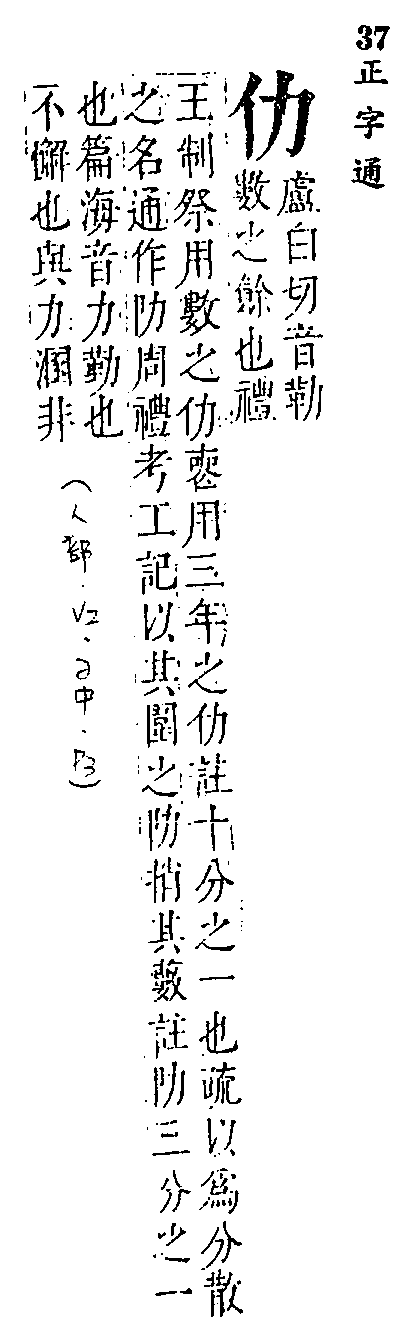 37 正字通
仂
盧白切音勒
數之餘也禮
王制祭用數之仂喪用三年之仂註十分之一也疏以爲分散
之名通作阞周禮考工記以其圍之阞捎其藪註阞三分之一
也篇海音力勤也
不懈也與力溷非
(人部.V2.子中.P3)